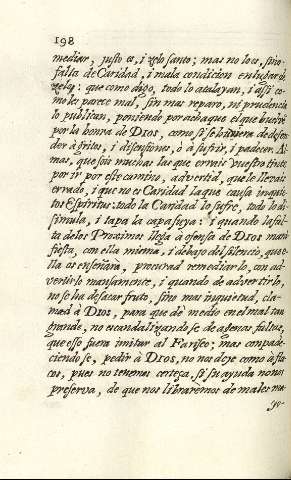 198
mediar, justo es, i zelo santo; mas no lo es, sino
falta de Caridad, i mala condicion en lugar de
zelo: que como digo, todo lo atalayan, i assi co-
mo les parece mal, sin mas reparo, ni prudencia
lo publican, poniendo por achaque el que bueluē
por la honra de DIOS, como si se huviera de defen-
der à gritos, i disensiones, ò à sufrir, i padecer. Al-
mas, que sois muchas las que errais vuestro
por ir por este camino, advertid, que le llevais
errado, i que no es Caridad la que causa inquie-
tos Espiritus: todo la Caridad lo sufre, todo lo di-
simula, i tapa la capa suya: i quando la fal-
ta de los Proximos llega à ofensa de DIOS mani-
fiesta, con ella misma, i debajo del silencio, que e-
lla os enseñará, procurad remediarlo, con ad-
vertirlo mansamente, i quando de advertirlo,
no se ha de sacar fruto, sino mas inquietud, cla-
mad à DIOS, para que dè medio en el mal tan
grande, no escandalizando se de agenas faltas,
que esso fuera imitar al Fariseo; mas conpade-
ciendo se, pedir à DIOS, no nos deje como à fla-
cos, pues no tenemos certeza, si su ayuda no nos
preserva, de que nos libraremos de males ma-
yo-